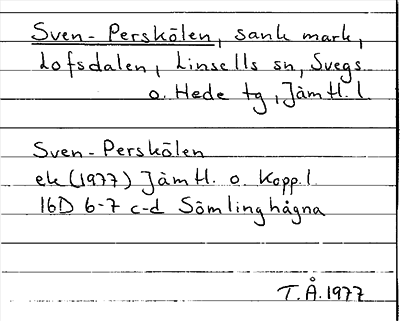 Sven-Perskölen, sank mark,
Lofsdalen, Linsells sn, Svegs
o. Hede tg, Jämtl. l
Sven-Perskölen
ek (1977) Jämtl. o. Kopp. l.
16D 6-7 c-d Sömlinghågna
T.Å. 1977